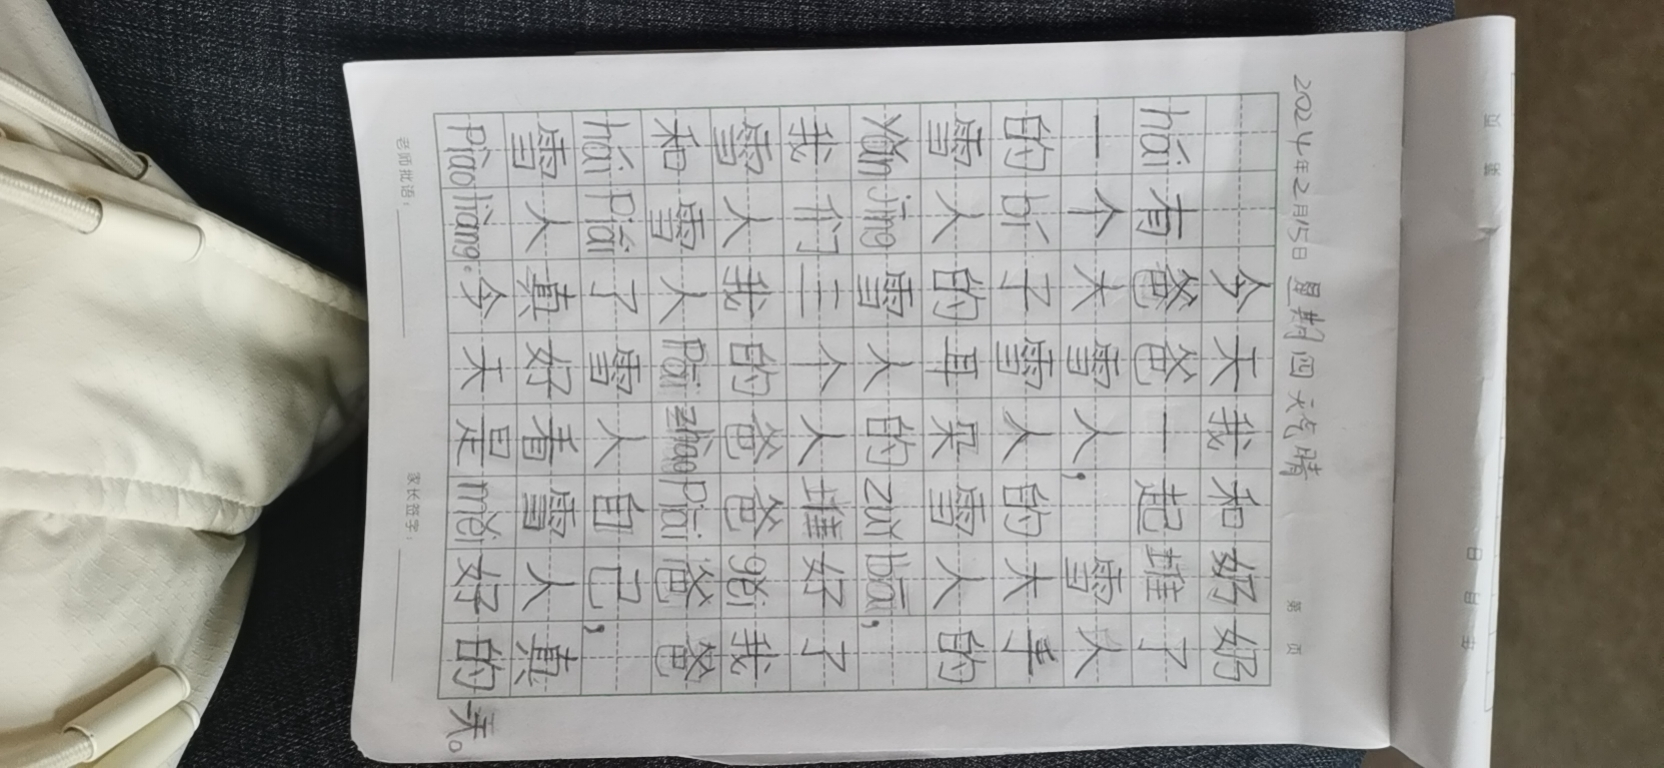 第 页
年 月 日
2024年2月15日 星期四 天气晴
第 页
今天我和奶奶
hái有爸爸一起堆了
一个大雪人，雪人
的bí子雪人的大手
雪人的耳朵雪人的
Yǎn jīng雪人的zuǐ bā，
我们三个人堆好了
雪人我的爸爸gěi我
和雪人Pāi zhào Piàn爸爸
hái Pāi了雪人自己，
雪人真好看雪人真
Piào liang.今天是měi好的一天。
老师批语：
家长签字：